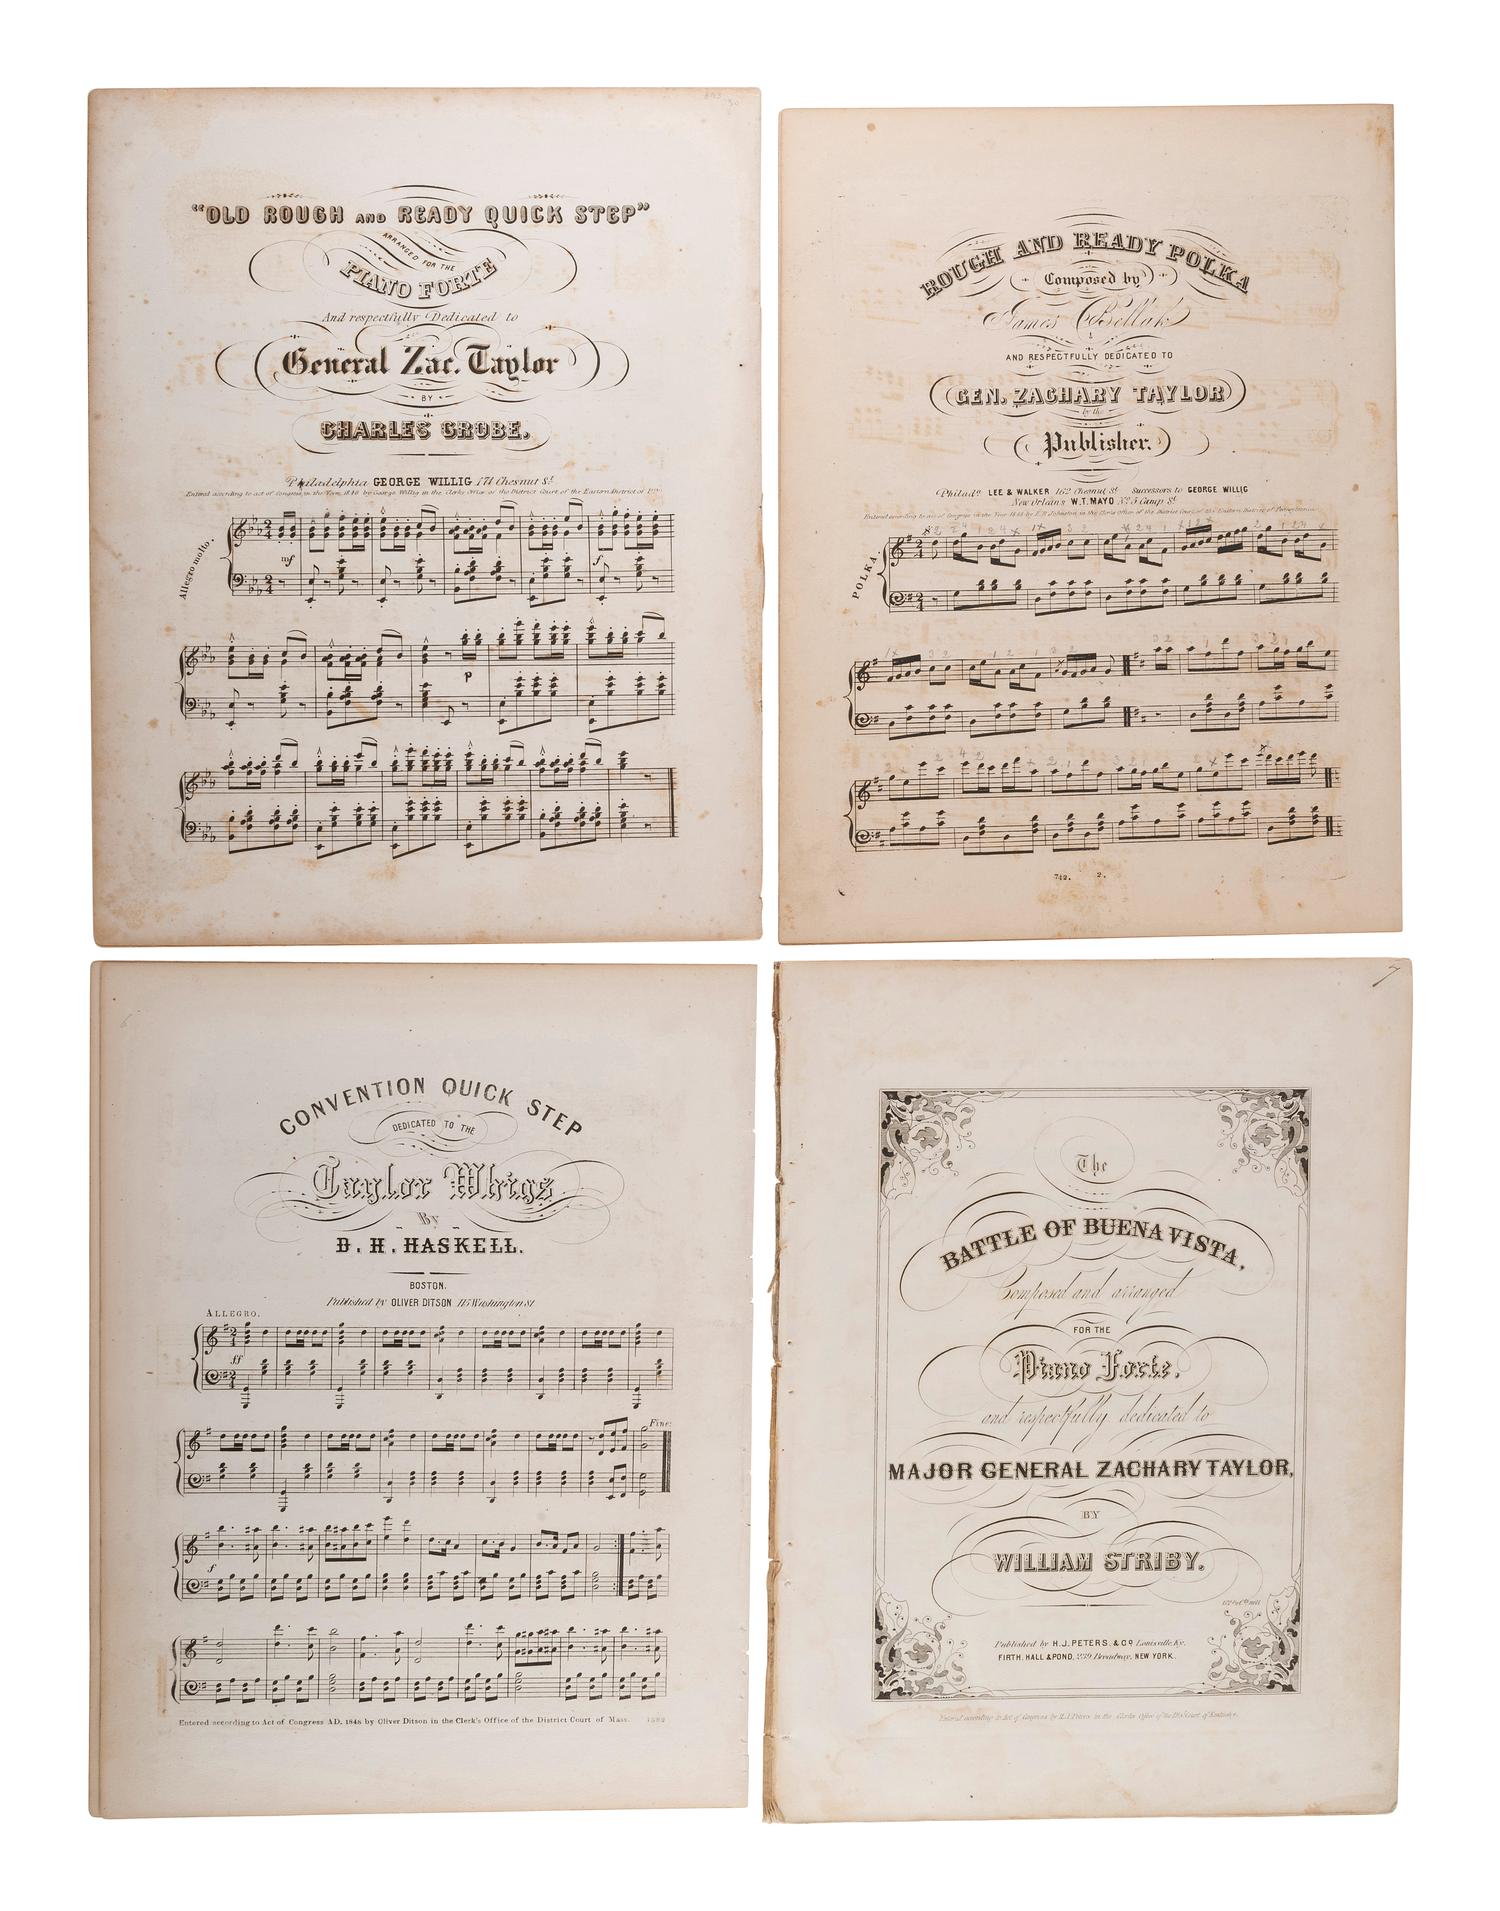 "OLD ROUGH AND READY QUICK STEP"
ARRANGED FOR THE
PIANO FORTE
And respectfully Dedicated to
General Zac. Taylor
BY
CHARLES GROBE.
Philadelphia GEORGE WILLIG 171 Chesnut St.
Entered according to act of Congress, in the Year, 1846 by George Willig in the Clerks Office of the District Court of the Eastern District of
Allegro molto.
mf
f
p
ROUGH AND READY POLKA
Composed by
James Bellak
AND RESPECTFULLY DEDICATED TO
GEN. ZACHARY TAYLOR
by the
Publisher.
Philada. LEE & WALKER 162 Chesnut St. Successors to GEORGE WILLIG
New Orleans W. T. MAYO No. 5 Camp St.
Entered according to act of Congress in the Year 1848 by in the Clerks Office of the District Court of the Eastern District of Pennsylvania
POLKA.
742. 2.
CONVENTION QUICK STEP
DEDICATED TO THE
Taylor Whigs
By
D. H. HASKELL.
BOSTON.
Published by OLIVER DITSON 115 Washington St
ALLEGRO.
ff
Fine
f
Entered according to Act of Congress AD. 1848 by Oliver Ditson in the Clerk's Office of the District Court of Mass.
The
BATTLE OF BUENA VISTA,
Composed and arranged
FOR THE
Piano Forte,
and respectfully dedicated to
MAJOR GENERAL ZACHARY TAYLOR,
BY
WILLIAM STRIBY.
Published by H. J. PETERS, & Co. Louisville, Ky.
FIRTH, HALL & POND, 239 Broadway, NEW YORK.
Entered according to Act of Congress by H. J. Peters in the Clerks Office of the Dist. Court of Kentucky.